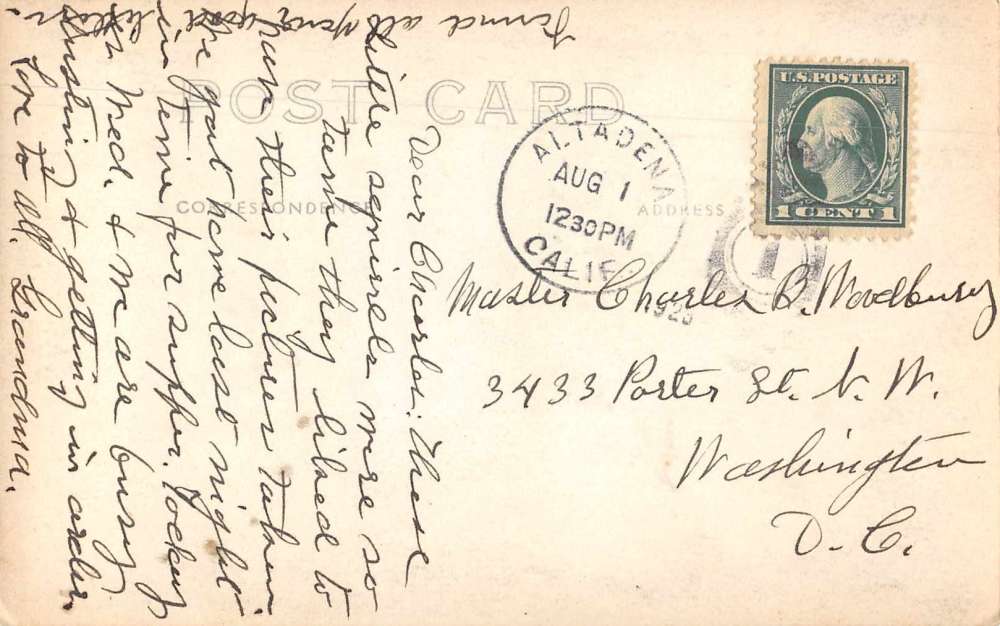 POST CARD
CORRESPONDENCE
ADDRESS
U.S. POSTAGE
1 CENT 1
ALTADENA
AUG 1
1230PM
CALIF.
1923
1
Master Charles B. Woodbury
3433 Porter St. N. W.
Washington
D. C.
Dear Charles: These
little squirrels were so
tame they liked to
have their picture taken.
We got home last night
in time for supper. Today
Med. & me are busy
dusting & getting in order.
Love to all. Grandma.
Found all your good